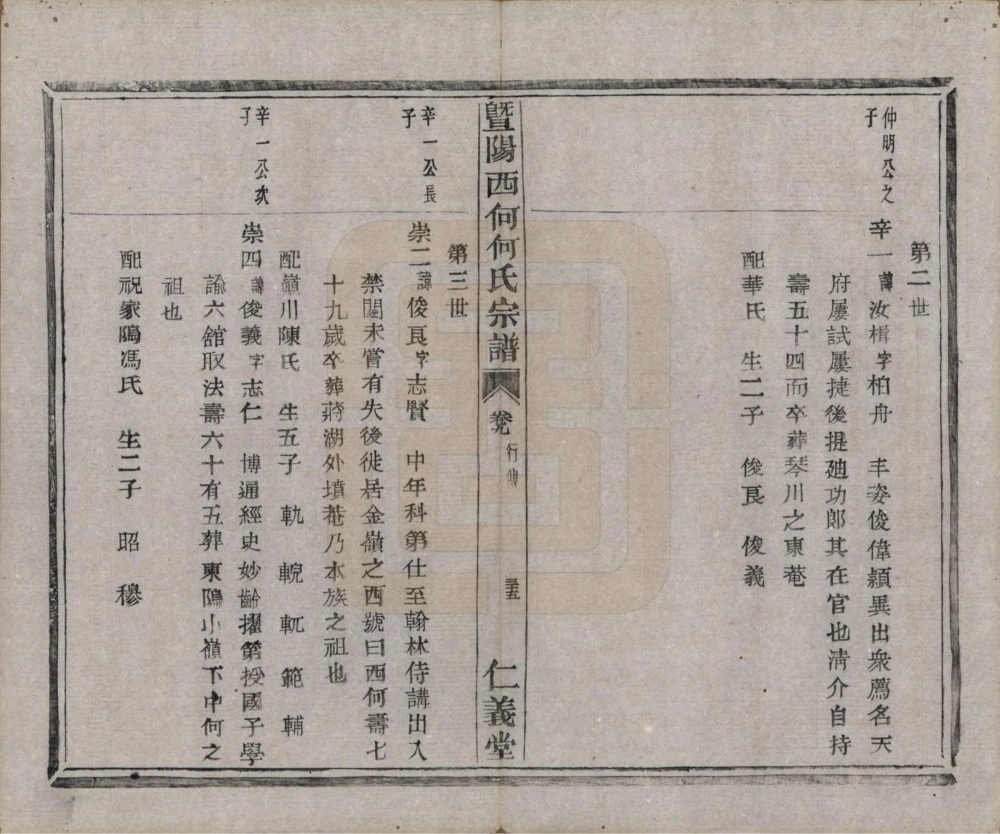 第二世
仲明公之子
辛一諱汝楫字柏舟 丰姿俊偉穎異出衆薦名天
府屢試屢捷後提廸功郎其在官也清介自持
壽五十四而卒葬琴川之東菴
配華氏 生二子 俊良 俊義
暨陽西何何氏宗譜 卷 行傳 三十五 仁義堂
第三世
辛一公長子
崇二諱俊良字志賢 中年科第仕至翰林侍講出入
禁闥未嘗有失後徙居金嶺之西號曰西何壽七
十九歲卒葬蔣湖外墳菴乃本族之祖也
配嶺川陳氏 生五子 軌 輗 軏 範 輔
辛一公次子
崇四諱俊義字志仁 博通經史妙齡擢第授國子學
諭六舘取法壽六十有五葬東隝小嶺下中何之
祖也
配祝家隝馮氏 生二子 昭 穆